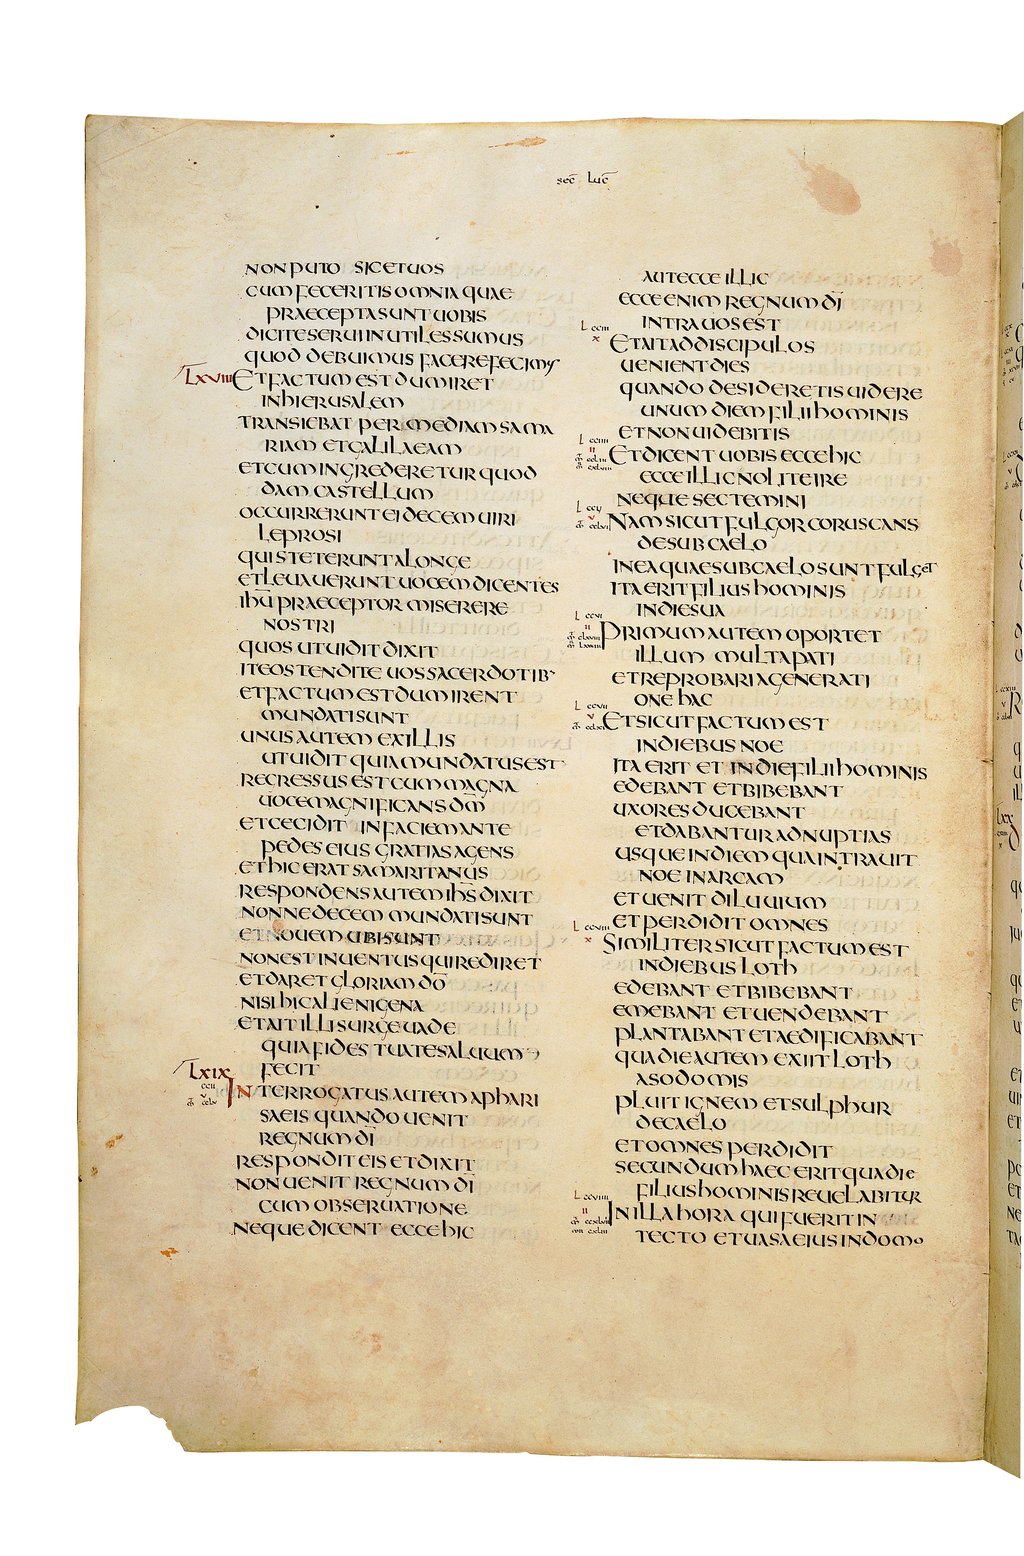 secͨ Lucͨ
NON PUTO SIC ET UOS
CUM FECERITIS OMNIA QUAE
PRAECEPTA SUNT UOBIS
DICITE SERUI INUTILES SUMUS
QUOD DEBUIMUS FACERE FECIMUS
LXVIII ET FACTUM EST DUM IRET
IN HIERUSALEM
TRANSIEBAT PER MEDIAM SAMA
RIAM ET GALILAEAM
ET CUM INGREDERETUR QUOD
DAM CASTELLUM
OCCURRERUNT EI DECEM UIRI
LEPROSI
QUI STETERUNT A LONGE
ET LEUAUERUNT UOCEM DICENTES
IHU̅ PRAECEPTOR MISERERE
NOSTRI
QUOS UT UIDIT DIXIT
ITE OSTENDITE UOS SACERDOTIB·
ET FACTUM EST DUM IRENT
MUNDATI SUNT
UNUS AUTEM EX ILLIS
UT UIDIT QUIA MUNDATUS EST
REGRESSUS EST CUM MAGNA
UOCE MAGNIFICANS DM̅
ET CECIDIT IN FACIEM ANTE
PEDES EIUS GRATIAS AGENS
ET HIC ERAT SAMARITANUS
RESPONDENS AUTEM IHS̅ DIXIT
NONNE DECEM MUNDATI SUNT
ET NOUEM UBI SUNT
NON EST INUENTUS QUI REDIRET
ET DARET GLORIAM DO̅
NISI HIC ALIENIGENA
ET AIT ILLI SURGE UADE
QUIA FIDES TUA TE SALUUM
FECIT
LXIX
ccii
INTERROGATUS AUTEM A PHARI
SAEIS QUANDO UENIT
REGNUM DI̅
RESPONDIT EIS ET DIXIT
NON UENIT REGNUM DI̅
CUM OBSERUATIONE
NEQUE DICENT ECCE HIC
AUT ECCE ILLIC
ECCE ENIM REGNUM DI̅
INTRA UOS EST
L cciii
x ET AIT AD DISCIPULOS
UENIENT DIES
QUANDO DESIDERETIS UIDERE
UNUM DIEM FILII HOMINIS
ET NON UIDEBITIS
L cciiii
ii ET DICENT UOBIS ECCE HIC
ECCE ILLIC NOLITE IRE
NEQUE SECTEMINI
L ccv
v NAM SICUT FULGOR CORUSCANS
DE SUB CAELO
IN EA QUAE SUB CAELO SUNT FULGET
ITA ERIT FILIUS HOMINIS
IN DIE SUA
L ccvi
ii PRIMUM AUTEM OPORTET
ILLUM MULTA PATI
ET REPROBARI A GENERATI
ONE HAC
L ccvii
v ET SICUT FACTUM EST
IN DIEBUS NOE
ITA ERIT ET IN DIE FILII HOMINIS
EDEBANT ET BIBEBANT
UXORES DUCEBANT
ET DABANTUR AD NUPTIAS
USQUE IN DIEM QUA INTRAUIT
NOE IN ARCAM
ET UENIT DILUUIUM
ET PERDIDIT OMNES
L ccviii
x SIMILITER SICUT FACTUM EST
IN DIEBUS LOTH
EDEBANT ET BIBEBANT
EMEBANT ET UENDEBANT
PLANTABANT ET AEDIFICABANT
QUA DIE AUTEM EXIIT LOTH
A SODOMIS
PLUIT IGNEM ET SULPHUR
DE CAELO
ET OMNES PERDIDIT
SECUNDUM HAEC ERIT QUA DIE
FILIUS HOMINIS REUELABITUR
L ccviiii
ii IN ILLA HORA QUI FUERIT IN
TECTO ET UASA EIUS IN DOMO